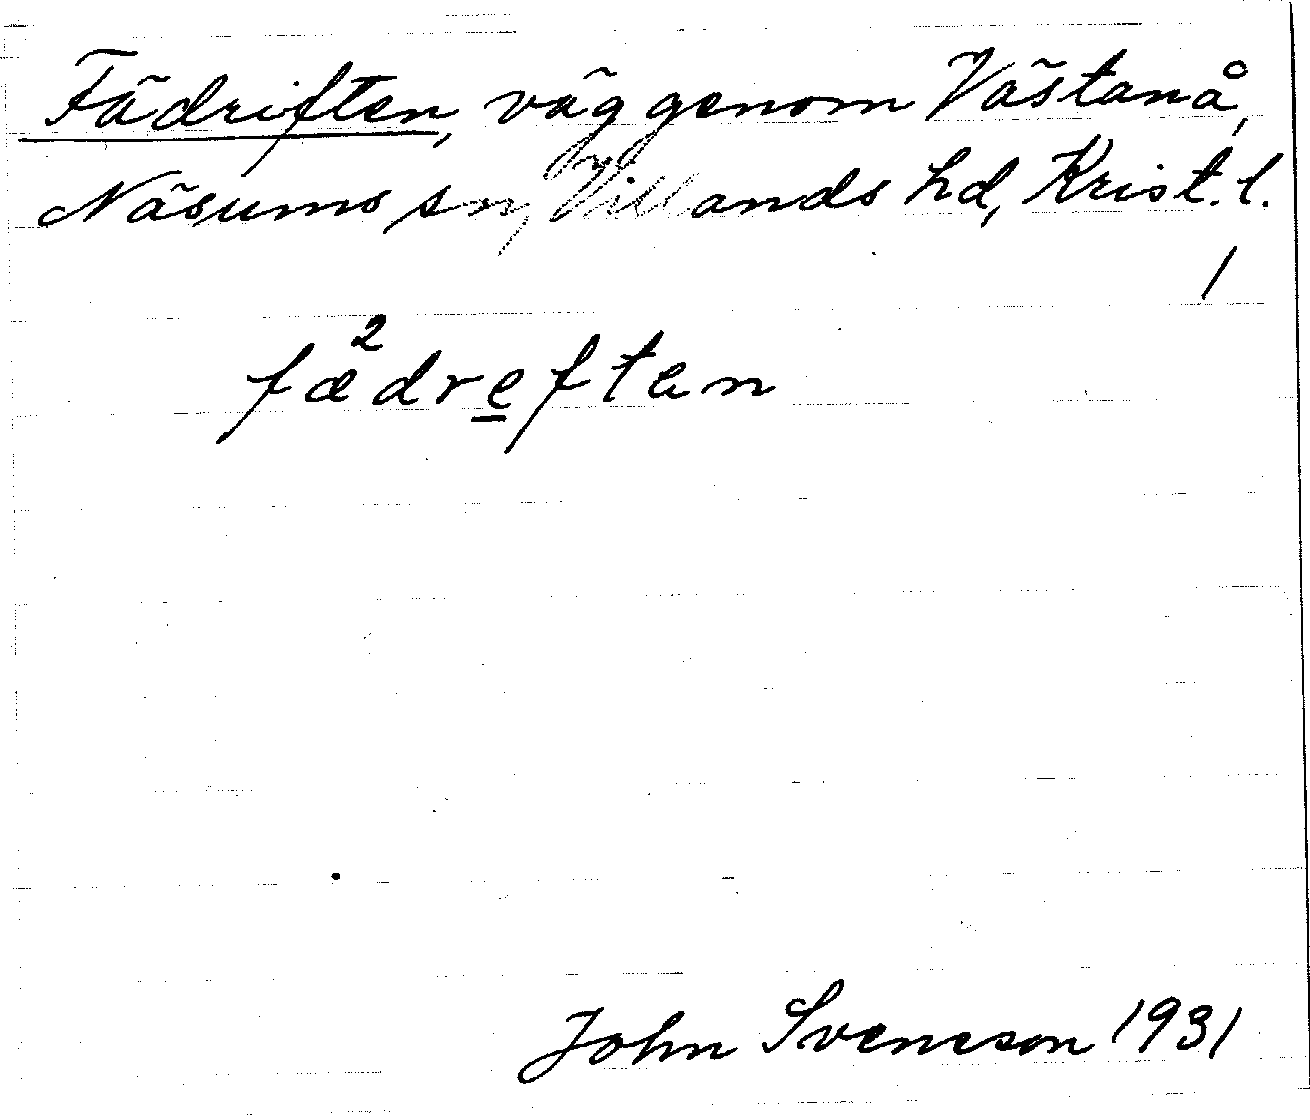 Fädriften, väg genom Västanå,
Näsums sn, Villands hd, Krist. l.
/
fæ²dreften
John Svenson 1931